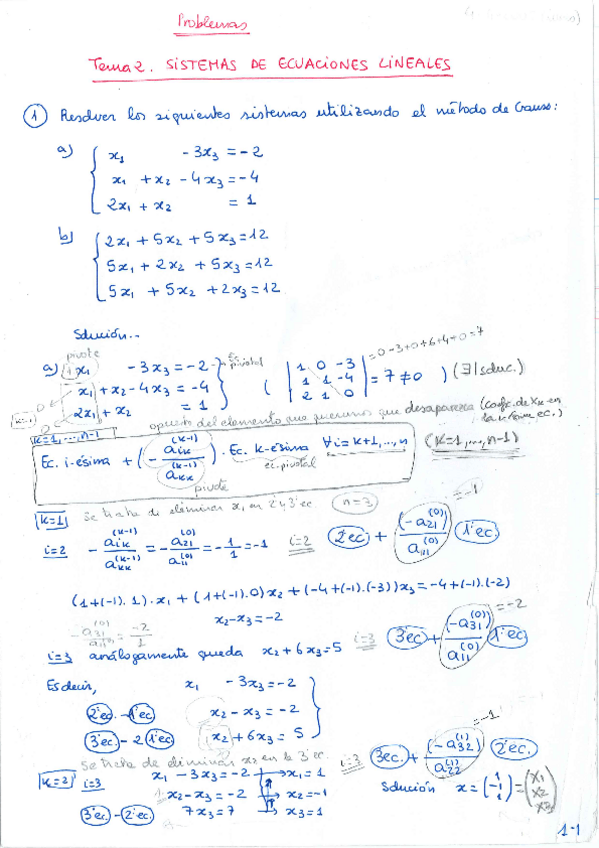 Problemas
Tema 2. SISTEMAS DE ECUACIONES LINEALES
① Resolver los siguientes sistemas utilizando el método de Gauss:
a) { x₁ - 3x₃ = -2
x₁ + x₂ - 4x₃ = -4
2x₁ + x₂ = 1
b) { 2x₁ + 5x₂ + 5x₃ = 12
5x₁ + 2x₂ + 5x₃ = 12
5x₁ + 5x₂ + 2x₃ = 12
Solución..
pivote
a) x₁ - 3x₃ = -2 Ec. pivotal
x₁ + x₂ - 4x₃ = -4
2x₁ + x₂ = 1
( | 1 0 -3 |
| 1 1 -4 | = 7 ≠ 0 ) (∃| soluc.)
| 2 1 0 |
= 0-3+0+6+4+0 = 7
opuesto del elemento que queremos que desaparezca (coefic. de xₖ en la i-ésima ec.)
K=1,...,n-1
Ec. i-ésima + (- aᵢₖ^(k-1) / aₖₖ^(k-1)) · Ec. k-ésima ∀i = k+1,...,n
(K=1,...,n-1)
ec. pivotal
pivote
K=1 Se trata de eliminar x₁ en 2ª y 3ª ec. n=3
i=2 - aᵢₖ^(k-1) / aₖₖ^(k-1) = - a₂₁^(0) / a₁₁^(0) = - 1/1 = -1 i=2 2ªec + (-a₂₁^(0)) / a₁₁^(0) 1ªec = -1
(1+(-1).1).x₁ + (1+(-1).0)x₂ + (-4+(-1).(-3))x₃ = -4+(-1).(-2)
x₂-x₃ = -2
- a₃₁^(0) / a₁₁^(0) = -2/1
i=3 análogamente queda x₂+6x₃=5 i=3 3ªec + (-a₃₁^(0)) / a₁₁^(0) 1ªec = -2
Es decir, x₁ - 3x₃ = -2
2ªec - 1ªec x₂ - x₃ = -2
3ªec - 2 1ªec x₂ + 6x₃ = 5
Se trata de eliminar x₂ en la 3ª ec.
i=3 3ªec + (-a₃₂^(1)) / a₂₂^(1) 2ªec. = -1
K=2 i=3 x₁ - 3x₃ = -2 → x₁ = 1
x₂ - x₃ = -2 → x₂ = -1
3ªec - 2ªec 7x₃ = 7 → x₃ = 1
Solución x = (1 -1 1) = (x₁ x₂ x₃)
1-1